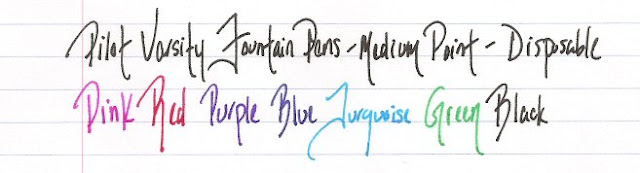 Pilot Varsity Fountain Pens - Medium Point - Disposable
Pink Red Purple Blue Turquoise Green Black